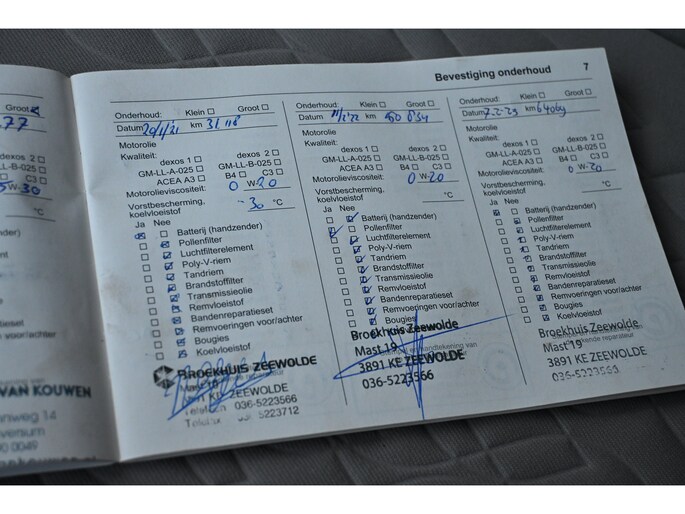 Bevestiging onderhoud 7
Groot
77
W-30
°C
(handzender)
filter
element
riem
ilter
ieolie
stof
atieset
en voor/achter
of
VAN KOUWEN
nweg 14
versum
0049
Onderhoud: Klein ☐ Groot ☐
Datum 20/1/21 km 31 118
Motorolie
Kwaliteit:
dexos 1 ☐ dexos 2 ☐
GM-LL-A-025 ☐ GM-LL-B-025 ☐
ACEA A3 ☐ B4 ☐ C3 ☐
Motorolieviscositeit: 0 W-20
Vorstbescherming,
koelvloeistof: -30 °C
Ja Nee
Batterij (handzender)
Pollenfilter
Luchtfilterelement
Poly-V-riem
Tandriem
Brandstoffilter
Transmissieolie
Remvloeistof
Bandenreparatieset
Remvoeringen voor/achter
Bougies
Koelvloeistof
BROEKHUIS ZEEWOLDE
Mast 19
3891 KE ZEEWOLDE
Telefoon 036-5223566
Telefax 036-5223712
Onderhoud: Klein ☐ Groot ☐
Datum 11/2/22 km
Motorolie
Kwaliteit:
dexos 1 ☐ dexos 2 ☐
GM-LL-A-025 ☐ GM-LL-B-025 ☐
ACEA A3 ☐ B4 ☐ C3 ☐
Motorolieviscositeit: 0 W-20
Vorstbescherming,
koelvloeistof: °C
Ja Nee
Batterij (handzender)
Pollenfilter
Luchtfilterelement
Poly-V-riem
Tandriem
Brandstoffilter
Transmissieolie
Remvloeistof
Bandenreparatieset
Remvoeringen voor/achter
Bougies
Koelvloeistof
Broekhuis Zeewolde
Mast 19
3891 KE ZEEWOLDE
036-5223566
Onderhoud: Klein ☐ Groot ☐
Datum 7-2-23 km 64069
Motorolie
Kwaliteit:
dexos 1 ☐ dexos 2 ☐
GM-LL-A-025 ☐ GM-LL-B-025 ☐
ACEA A3 ☐ B4 ☐ C3 ☐
Motorolieviscositeit: 0 W-20
Vorstbescherming,
koelvloeistof: °C
Ja Nee
Batterij (handzender)
Pollenfilter
Luchtfilterelement
Poly-V-riem
Tandriem
Brandstoffilter
Transmissieolie
Remvloeistof
Bandenreparatieset
Remvoeringen voor/achter
Bougies
Koelvloeistof
Broekhuis Zeewolde
Mast 19
3891 KE ZEEWOLDE
036-5223566